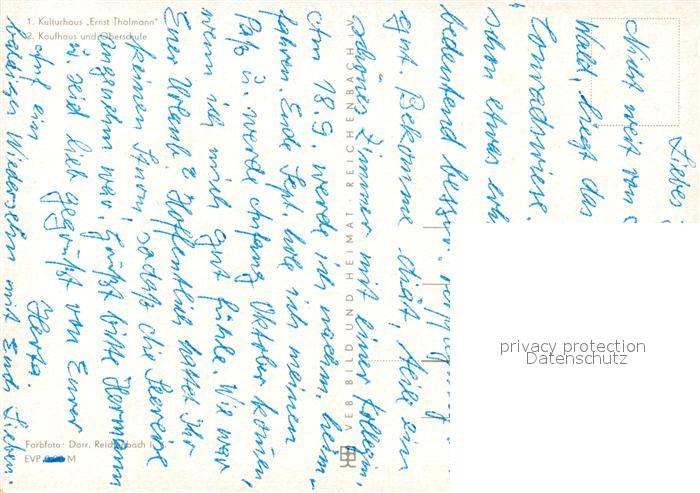 1. Kulturhaus „Ernst Thälmann"
2. Kaufhaus und Oberschule
Liebes
Nicht weit von
Wald, liegt das
Conradswiese.
schon etwas erh
bedeutend besser.
gut. Bekomme diät, teile ein
schönes Zimmer mit einer Kollegin.
Am 18.9. werde ich nachm. heim-
fahren. Ende Sept. hole ich meinen
Paß u. werde Anfang Oktober kommen,
wenn ich mich gut fühle. Wie war
Euer Urlaub? Hoffentlich hattet Ihr
keinen Sturm, sodaß die Seereise
angenehm war. Grüßt bitte Hermann
u. seid lieb gegrüßt von Eurer
Herta.
Auf ein
baldiges Wiedersehn mit Euch Lieben.
VEB BILD UND HEIMAT · REICHENBACH i. V.
Farbfoto: Darr, Reichenbach i.
EVP M
privacy protection
Datenschutz